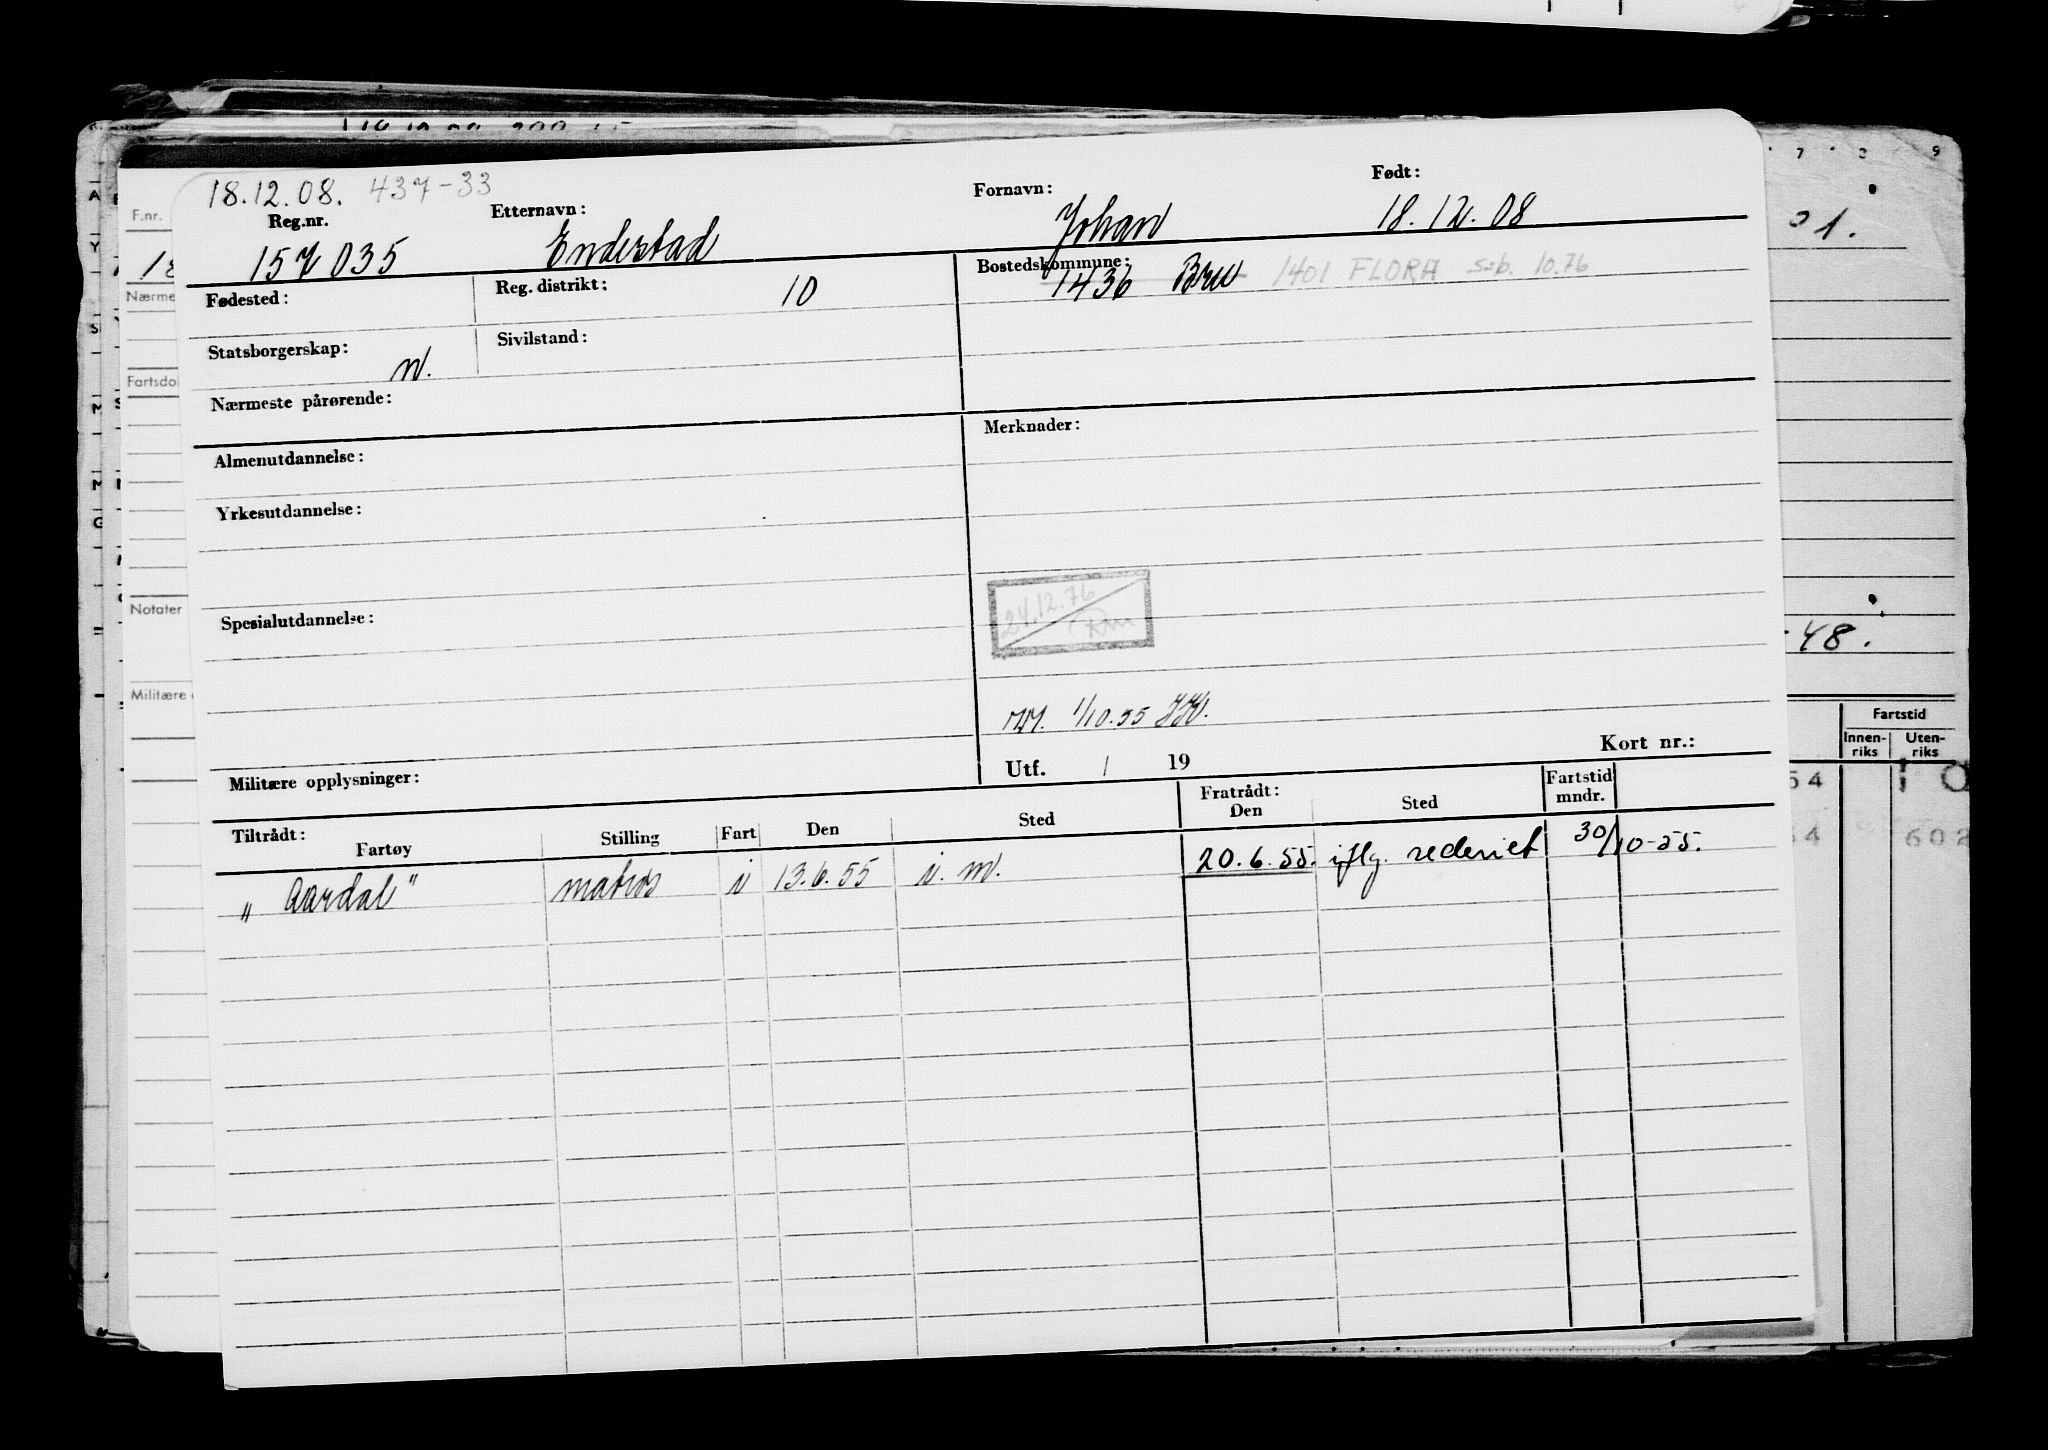 18.12.08. 437-33
Reg.nr. Etternavn: Fornavn: Født:
157 035 Endestad Johan 18.12.08
Fødested: Reg. distrikt: 10 Bostedskommune:
1436 Bru 1401 FLORA 10.76
Statsborgerskap: N. Sivilstand:
Nærmeste pårørende:
Almenutdannelse: Merknader:
Yrkesutdannelse:
24.12.76
Spesialutdannelse:
1/10.55
Militære opplysninger: Utf. / 19 Kort nr.:
Tiltrådt: Fratrådt: Fartstid
Fartøy Stilling Fart Den Sted Den Sted mndr.
"Aardal" matros i 13.6.55 i. m. 20.6.55. iflg. rederiet 30/10-55.
F.nr.
Nærme
Fartsdo
Notater
Militære
7 9
01.
48.
Fartstid
Innen-riks Uten-riks
54
602